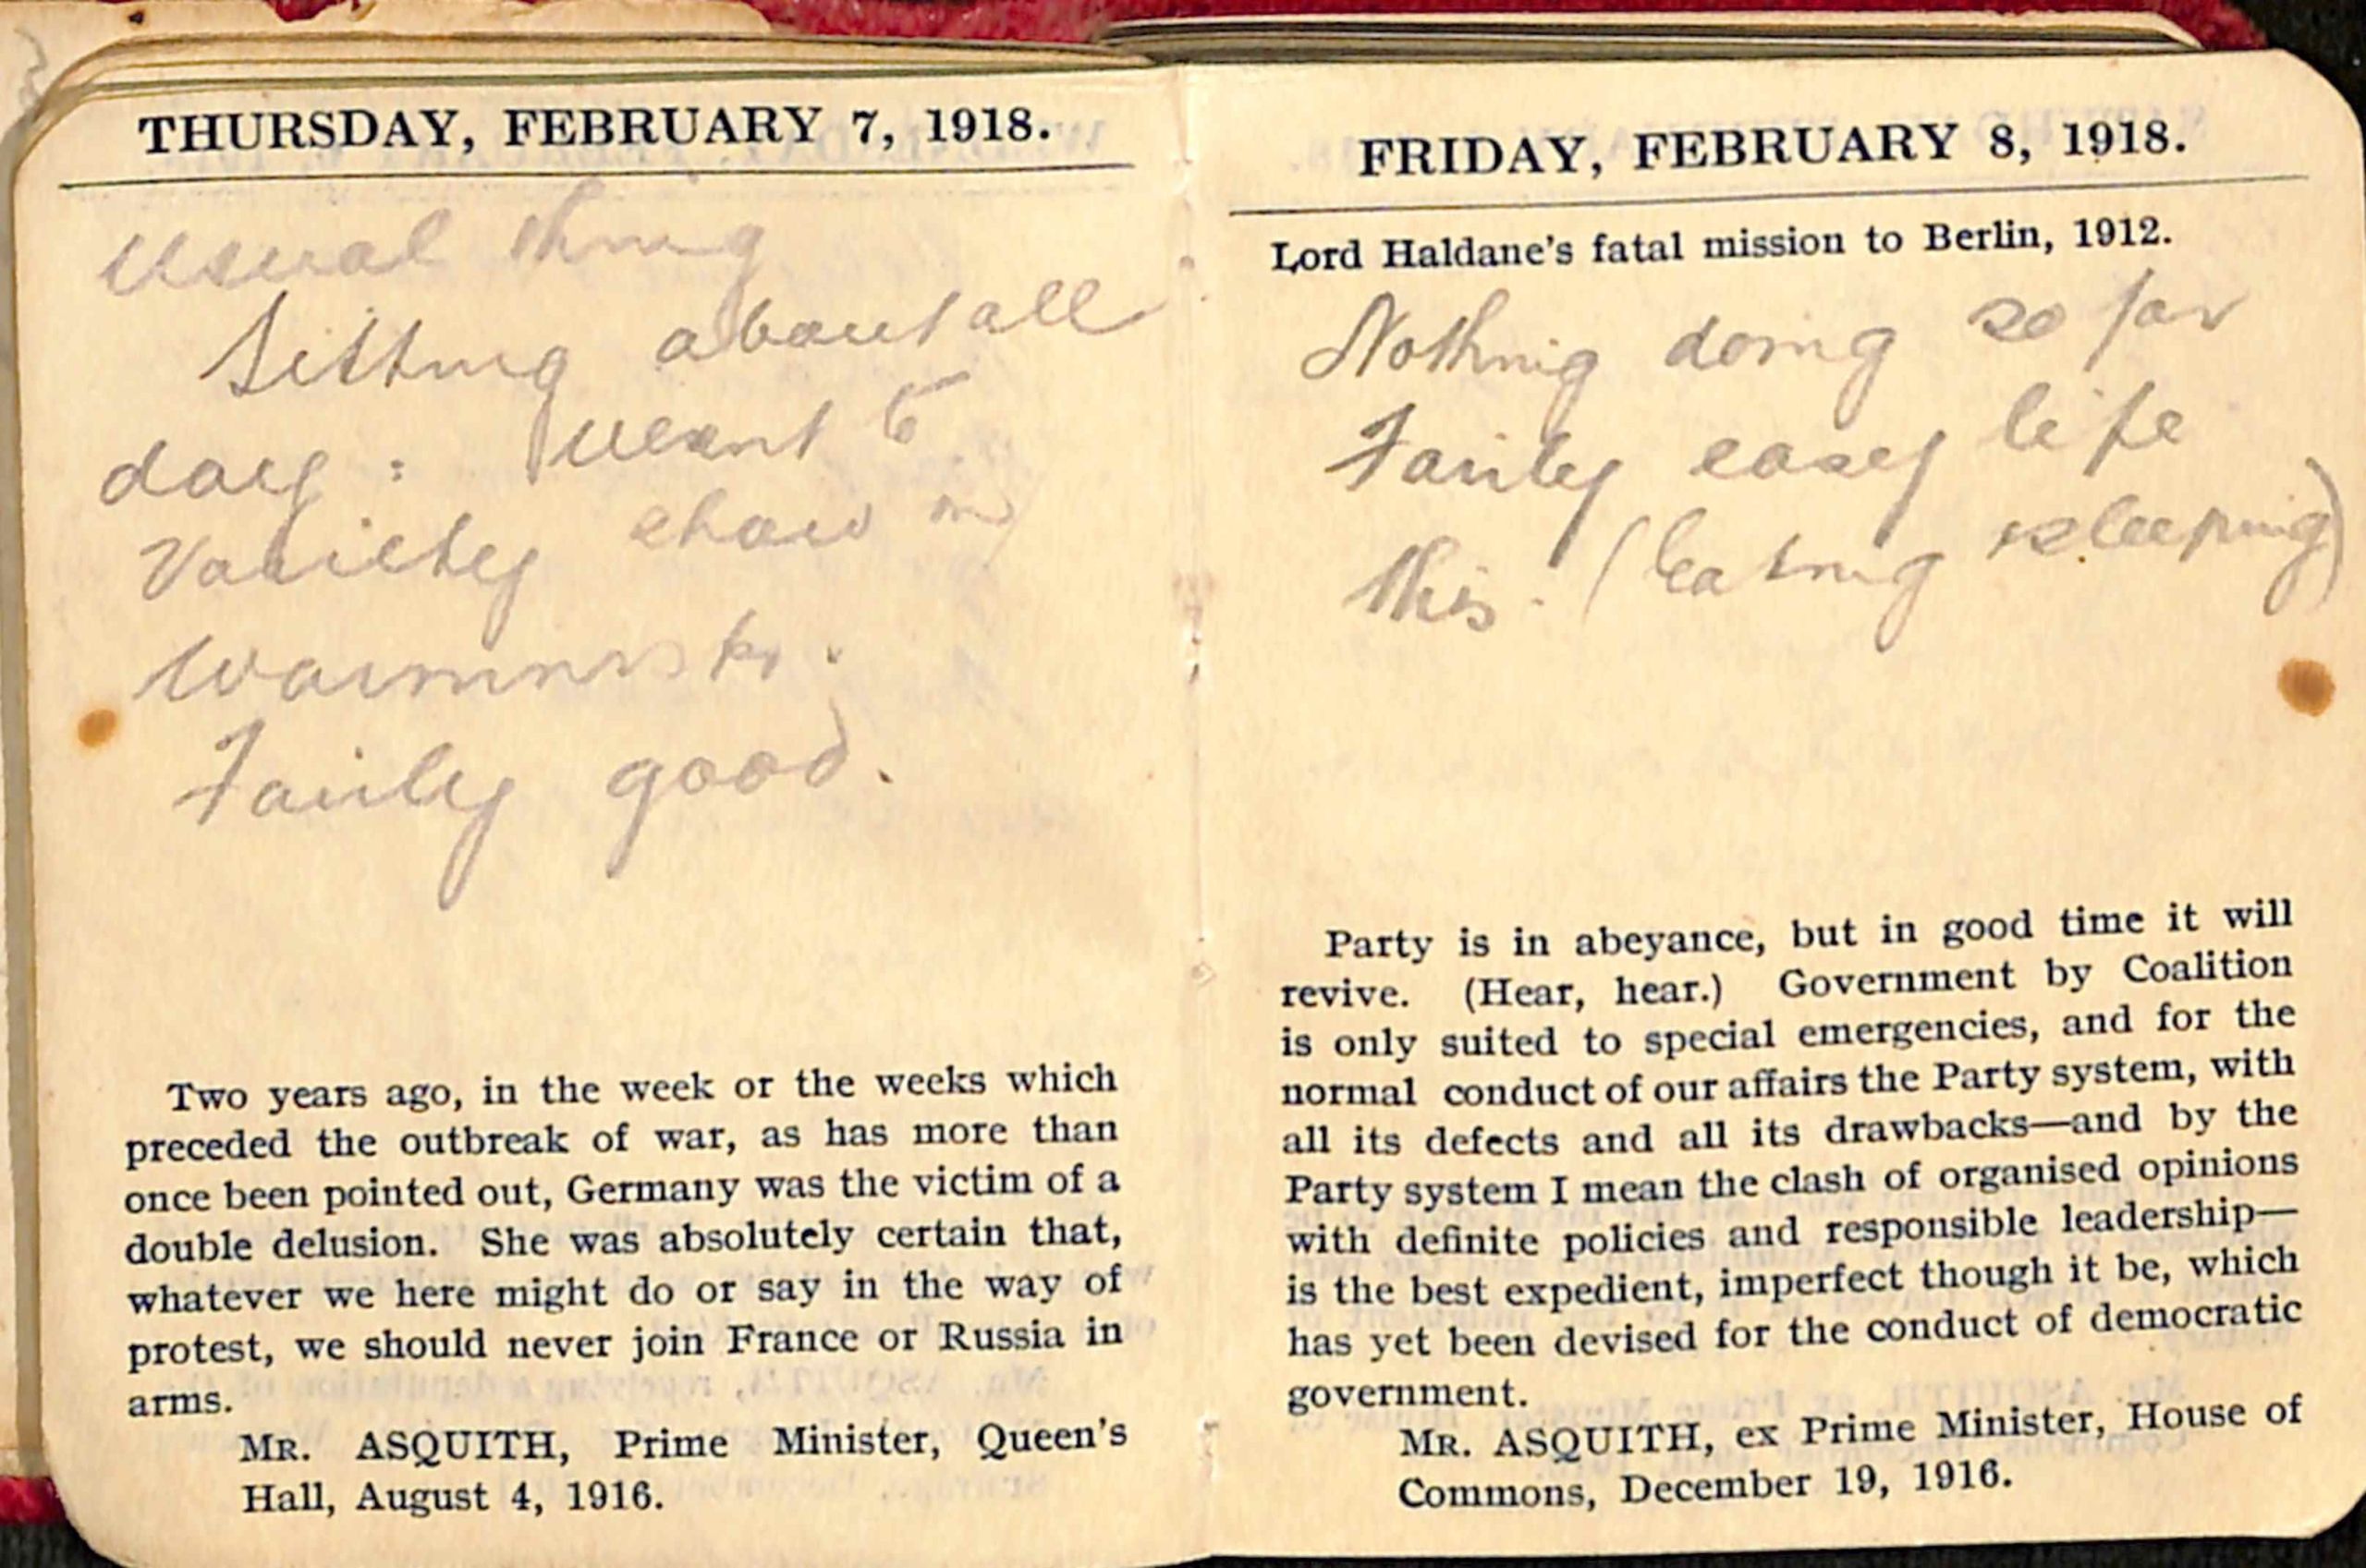 THURSDAY, FEBRUARY 7, 1918.
Usual thing
Sitting about all
day: Went to
Variety show in
Warminster.
Fairly good.
Two years ago, in the week or the weeks which
preceded the outbreak of war, as has more than
once been pointed out, Germany was the victim of a
double delusion. She was absolutely certain that,
whatever we here might do or say in the way of
protest, we should never join France or Russia in
arms.
MR. ASQUITH, Prime Minister, Queen's
Hall, August 4, 1916.
FRIDAY, FEBRUARY 8, 1918.
Lord Haldane's fatal mission to Berlin, 1912.
Nothing doing so far
Fairly easy life
this. (Eating sleeping)
Party is in abeyance, but in good time it will
revive. (Hear, hear.) Government by Coalition
is only suited to special emergencies, and for the
normal conduct of our affairs the Party system, with
all its defects and all its drawbacks—and by the
Party system I mean the clash of organised opinions
with definite policies and responsible leadership—
is the best expedient, imperfect though it be, which
has yet been devised for the conduct of democratic
government.
MR. ASQUITH, ex Prime Minister, House of
Commons, December 19, 1916.